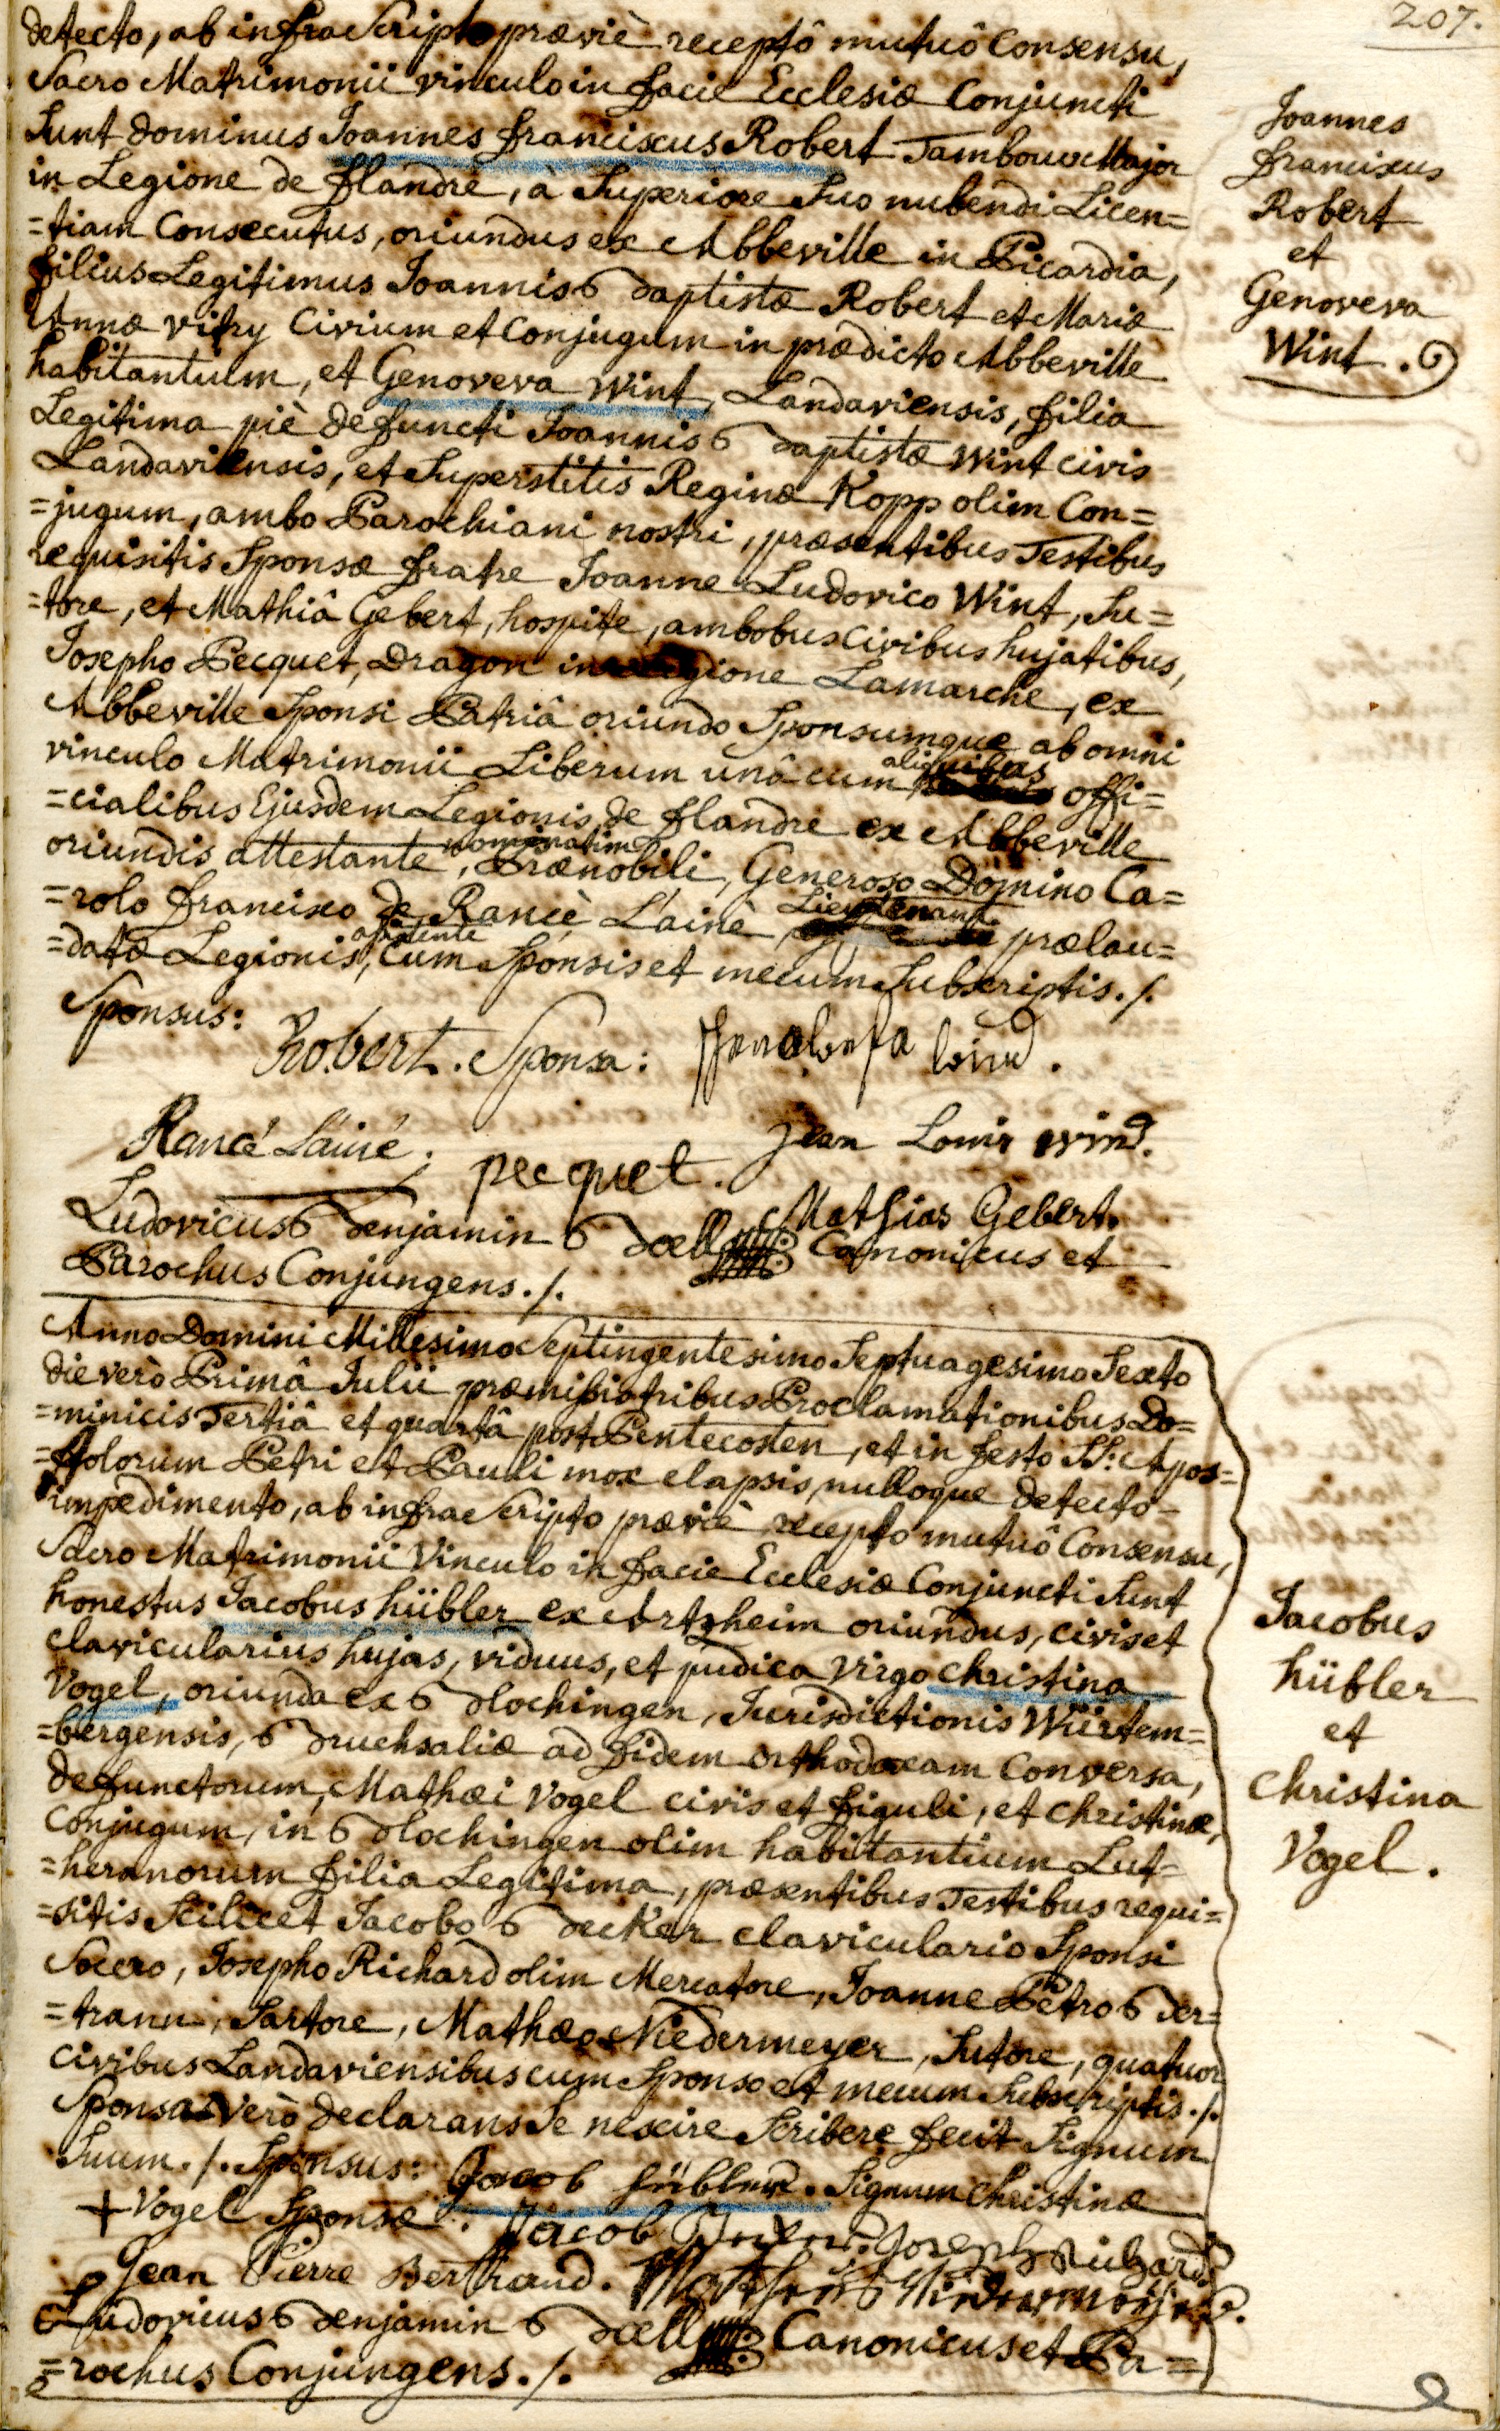 207.
detecto, ab infra Scripto præviè receptô mutuô Consensu,
Sacro Matrimonii vinculo in facie Ecclesiæ Conjuncti
Sunt dominus Joannes franciscus Robert Tambour Major
in Legione de flandre, à Superiore Suo nubendi Licen=
=tiam Consecutus, oriundus ex Abbeville in Picardia,
filius Legitimus Joannis Baptistæ Robert et Mariæ
Annæ vitry Civium et Conjugum in prædicto Abbeville
habitantium, et Genoveva Wint, Landaviensis, filia
Legitima piè defuncti Joannis Baptistæ Wint civis
Landaviensis, et Superstitis Reginæ Kopp olim Con=
=jugum, ambo Parochiani nostri, præsentibus Testibus
requisitis Sponsæ fratre Joanne Ludovico Wint, Su=
=tore, et Mathiâ Gebert, hospite, ambobus civibus hujatibus,
Josepho Pecquet, Dragon in Legione Lamarche, ex
Abbeville Sponsi Patriâ oriundo Sponsumque ab omni
vinculo Matrimonii Liberum unâ cum aliquibus offi=
=cialibus Ejusdem Legionis de flandre ex Abbeville
oriundis attestante, nominatim Prænobili, Generoso Domino Ca=
=rolo francisco de Rancè L'ainè, Lieutenant prælau=
=datæ Legionis, assistente cum Sponsis et mecum Subscriptis./.
Sponsus: Robert. Sponsa: Genofefa wind.
Rancé L'ainé. pecquet. Jean Louis wind.
Mathias Gebert.
Ludovicus Benjamin Bœll Canonicus et
Parochus Conjungens./.
Anno Domini Millesimo Septingentesimo Septuagesimo Sexto
die verò Primâ Julii præmissis tribus Proclamationibus Do=
=minicis Tertiâ et quartâ post Pentecosten, et in festo SS: Apos=
=tolorum Petri et Pauli mox elapsis, nulloque detecto
impedimento, ab infra Scripto præviè recepto mutuô Consensu,
Sacro Matrimonii Vinculo in facie Ecclesiæ Conjuncti Sunt
honestus Jacobus hübler ex Artzheim oriundus, civis et
clavicularius hujas, viduus, et pudica virgo christina
Vogel, oriunda ex Blochingen, Jurisdictionis Würtem=
=bergensis, Bruchsaliæ ad fidem orthodoxam Conversa,
defunctorum, Mathæi Vogel civis et figuli, et christinæ,
Conjugum, in Blochingen olim habitantium Lut=
=heranorum filia Legitima, præsentibus Testibus requi=
=sitis Scilicet Jacobo Becker claviculario Sponsi
Socero, Josepho Richard olim Mercatore, Joanne Petro Ber=
=trann, Sartore, Mathæo Niedermeyer, Sutore, quatuor
civibus Landaviensibus cum Sponso et mecum Subscriptis./.
Sponsa Verò declarans Se nescire Scribere fecit Signum
Suum./. Sponsus: Jacob hübler. Signum christinæ
+ Vogel Sponsæ. Jacob Joseph Richard
Jean Pierre Bertrand.
Ludovicus Benjamin Bœll Canonicus et Pa=
=rochus Conjungens./.
Joannes
franciscus
Robert
et
Genoveva
Wint.
Jacobus
hübler
et
Christina
Vogel.